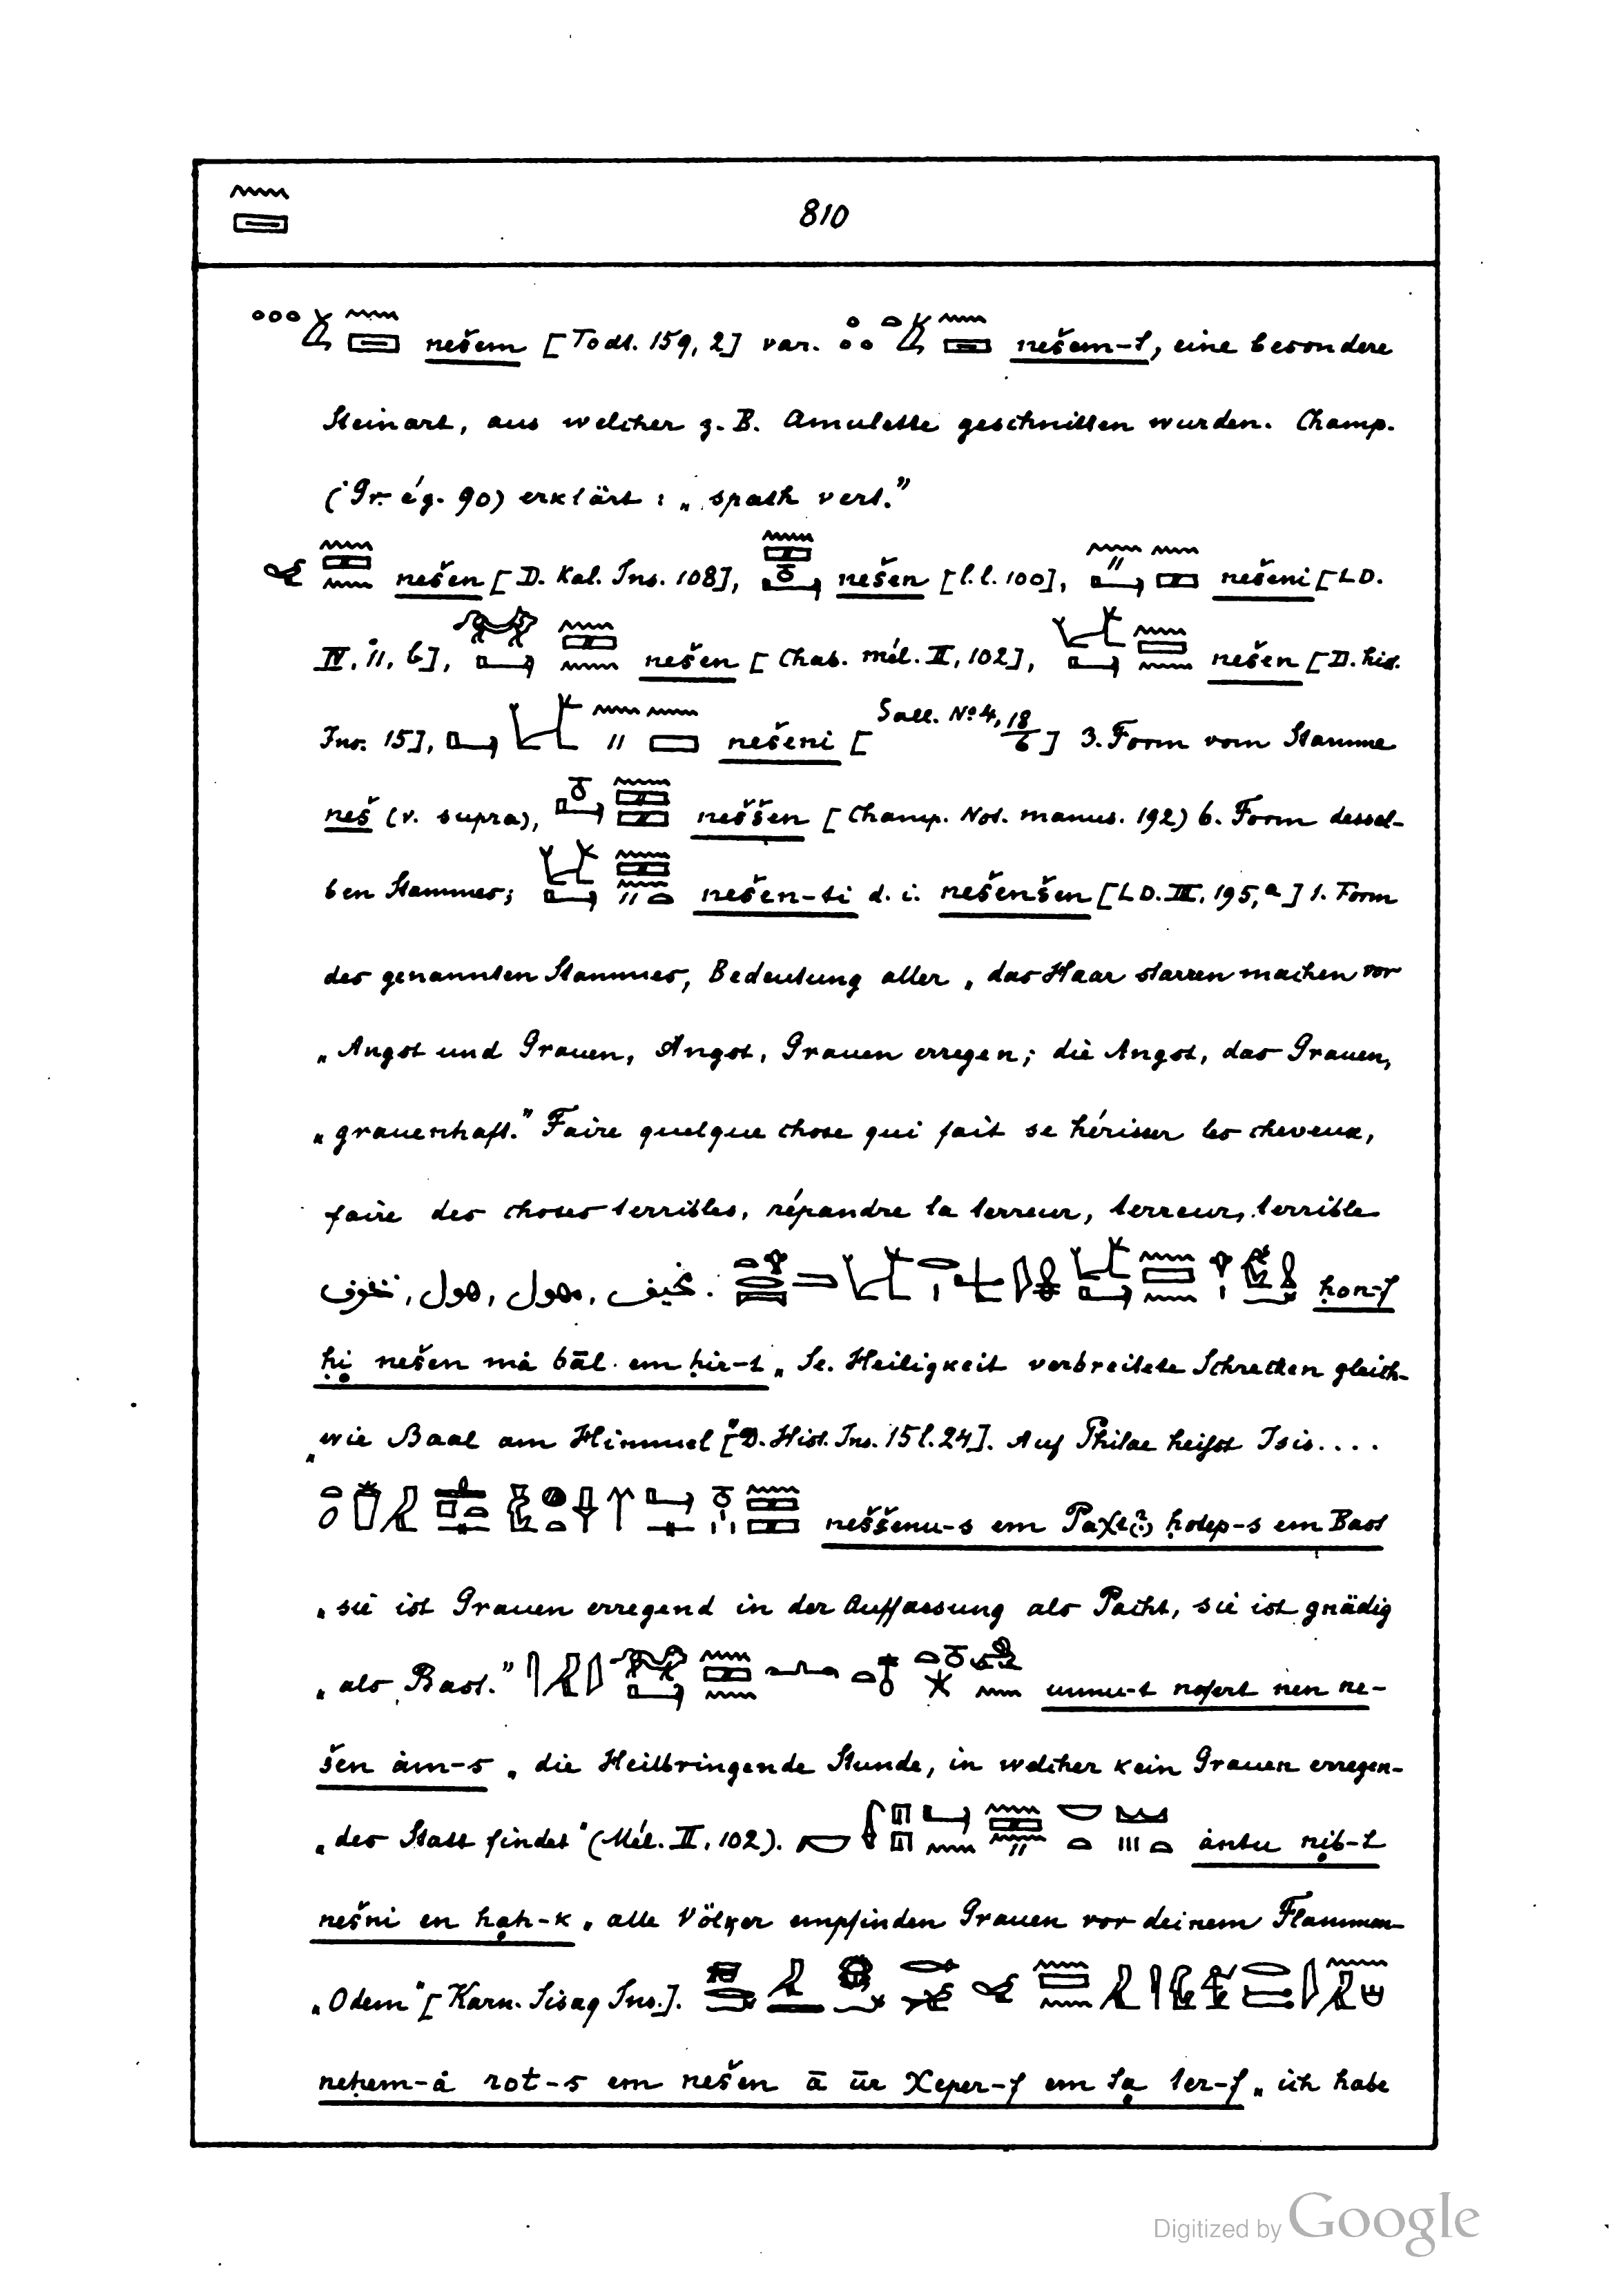 810
nešem [Todt. 159, 2] var. nešem-t, eine besondere
Steinart, aus welcher z. B. Amulette geschnitten wurden. Champ.
(Gr. ég. 90) erklärt: „spath vert.”
nešen [D. Kal. Ins. 108], nešen [l.l. 100], nešeni [LD.
IV, 11, b], nešen [Chab. mél. II, 102], nešen [D. his.
Ins. 15], nešeni [Sall. No 4, 18/6] 3. Form vom Stamme
neš (v. supra), neššen [Champ. Not. manus. 192) 6. Form dessel-
ben Stammes; nešen-ti d. i. nešenšen [LD. III, 195, a] 1. Form
des genannten Stammes, Bedeutung aller „das Haar starren machen vor
„Angst und Grauen, Angst, Grauen erregen; die Angst, das Grauen,
„grauenhaft.” Faire quelque chose qui fait se hérisser les cheveux,
faire des choses terribles, répandre la terreur, terreur, terrible
مخيف, مهول, هول, تخوف. ḥon-f
ḥi nešen má bāl em ḥir-t „Se. Heiligkeit verbreitete Schrecken gleich-
„wie Baal am Himmel [D. Hist. Ins. 15 l. 24]. Auf Philae heifst Isis....
neššenu-s em Paχt(?) ḥotep-s em Bast
„sie ist Grauen erregend in der Auffassung als Pacht, sie ist gnädig
„als Bast.” unnu-t nofert nen ne-
šen ám-s „die Heilbringende Stunde, in welcher kein Grauen erregen-
„des Statt findet” (Mél. II, 102). ántu nib-t
nešni en hah-k „alle Völker empfinden Grauen vor deinem Flammen-
„Odem” [Karn. Sisaq Ins.].
neḥem-á rot-s em nešen ā ūr χeper-f em ta ter-f „ich habe
Digitized by Google